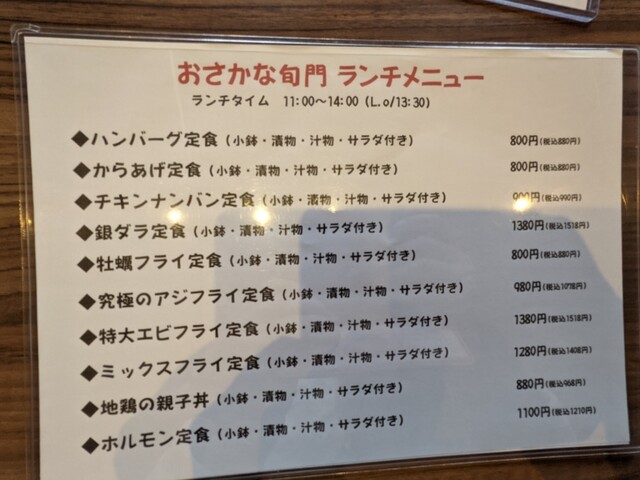 おさかな旬門 ランチメニュー
ランチタイム 11:00～14:00 (L.o/13:30)
◆ハンバーグ定食(小鉢・漬物・汁物・サラダ付き) 800円(税込880円)
◆からあげ定食(小鉢・漬物・汁物・サラダ付き) 800円(税込880円)
◆チキンナンバン定食(小鉢・漬物・汁物・サラダ付き) 900円(税込990円)
◆銀ダラ定食(小鉢・漬物・汁物・サラダ付き) 1380円(税込1518円)
◆牡蠣フライ定食(小鉢・漬物・汁物・サラダ付き) 800円(税込880円)
◆究極のアジフライ定食(小鉢・漬物・汁物・サラダ付き) 980円(税込1078円)
◆特大エビフライ定食(小鉢・漬物・汁物・サラダ付き) 1380円(税込1518円)
◆ミックスフライ定食(小鉢・漬物・汁物・サラダ付き) 1280円(税込1408円)
◆地鶏の親子丼(小鉢・漬物・汁物・サラダ付き) 880円(税込968円)
◆ホルモン定食(小鉢・漬物・汁物・サラダ付き) 1100円(税込1210円)